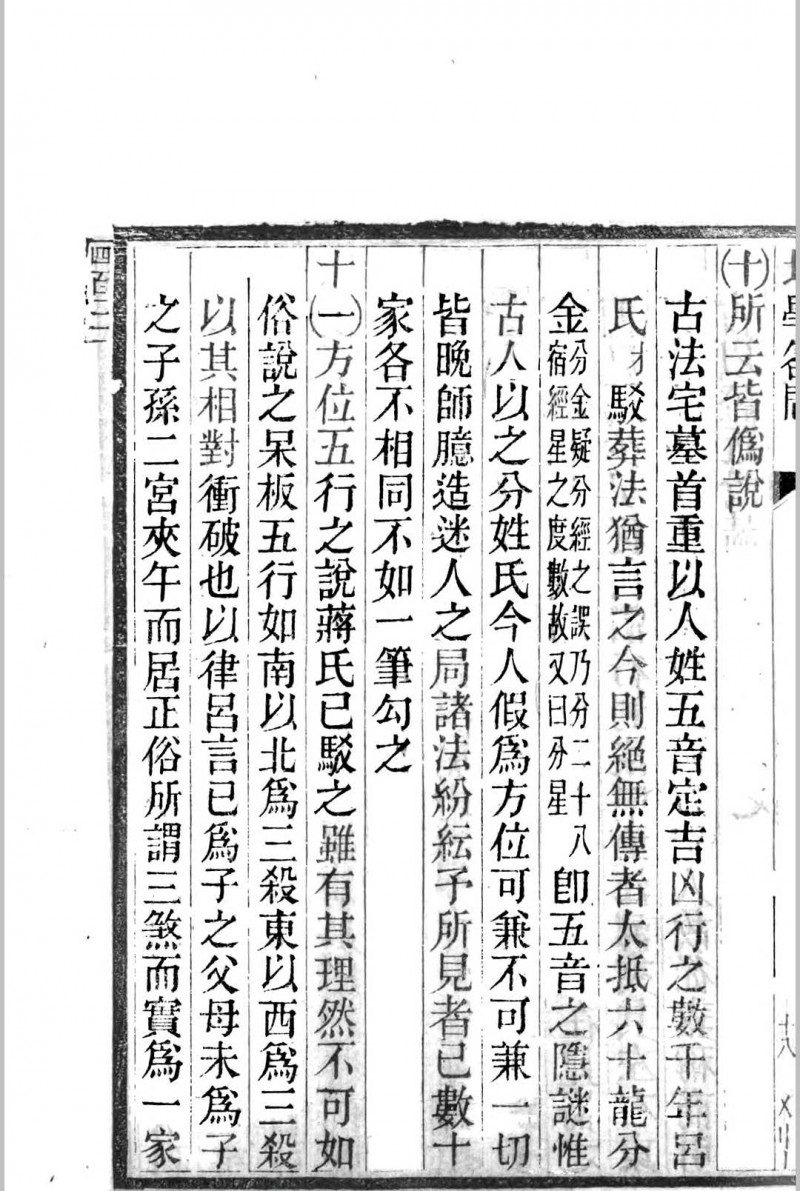 地學答問
(十)所云皆僞說
古法宅墓首重以人姓五音定吉凶行之數千年呂
氏才駁葬法猶言之今則絕無傳者太抵六十龍分
金分金疑分經之誤乃分二十八宿經星之度數故又曰分星卽五音之隱謎惟
古人以之分姓氏今人假爲方位可兼不可兼一切
皆晚師臆造迷人之局諸法紛紜予所見者已數十
家各不相同不如一筆勾之
十(一)方位五行之說蔣氏已駁之雖有其理然不可如
俗說之呆板五行如南以北爲三殺東以西爲三殺
以其相對衝破也以律呂言已爲子之父母未爲子
之子孫二宮夾午而居正俗所謂三煞而實爲一家
四百二二